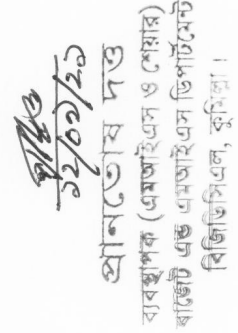 ১২/০৯/২১
প্রানতোষ দত্ত
ব্যবস্থাপক (এমআইএস ও শেয়ার)
বাজেট এন্ড এমআইএস ডিপার্টমেন্ট
বিজিডিসিএল, কুমিল্লা।